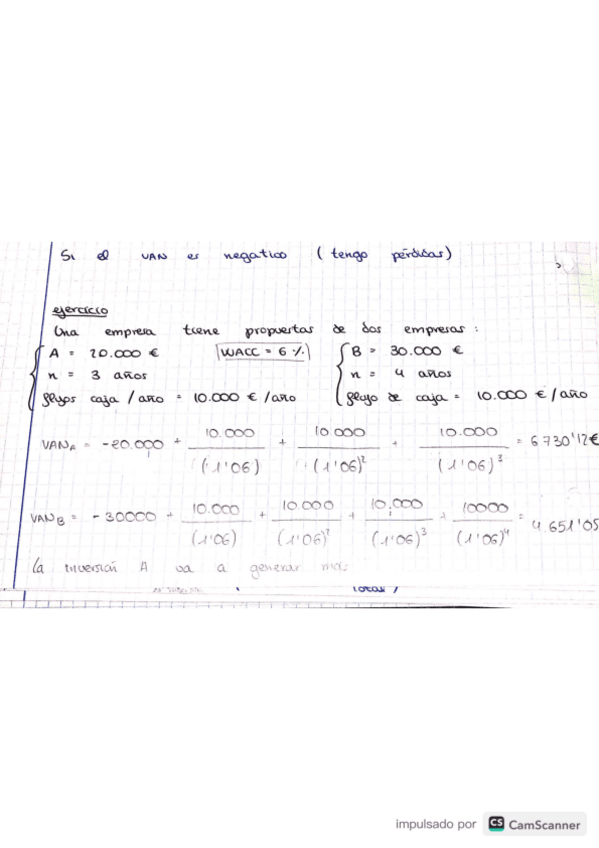 Si el VAN es negativo (tengo pérdidas)
ejercicio
Una empresa tiene propuestas de dos empresas:
A = 20.000 € WACC = 6% B = 30.000 €
n = 3 años n = 4 años
flujos caja / año = 10.000 € / año flujo de caja = 10.000 € / año
VAN_A = -20.000 + 10.000/(1'06) + 10.000/(1'06)² + 10.000/(1'06)³ = 6730'12€
VAN_B = -30000 + 10.000/(1'06) + 10.000/(1'06)² + 10.000/(1'06)³ + 10000/(1'06)⁴ = 4.651'05
La inversión A va a generar más
impulsado por CS CamScanner